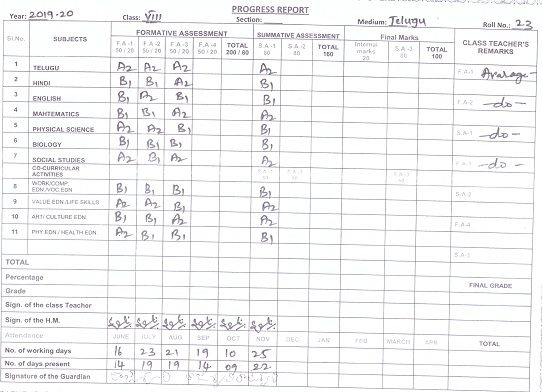 PROGRESS REPORT
Year: 2019-20 Class: VIII Section: Medium: Telugu Roll No.: 23
Sl.No. SUBJECTS FORMATIVE ASSESSMENT SUMMATIVE ASSESSMENT Final Marks CLASS TEACHER'S REMARKS
F.A-1 50 / 20 F.A-2 50 / 20 F.A-3 50 / 20 F.A-4 50 / 20 TOTAL 200 / 80 S.A-1 80 S.A-2 80 TOTAL 160 Internal marks 20 S.A-3 80 TOTAL 100
1 TELUGU A2 A2 A2 A2 F.A-1 Average-
2 HINDI B1 B1 A2 B1
3 ENGLISH B1 A2 B1 B1 F.A-2 -do-
4 MAHTEMATICS B1 B1 A2 B1
5 PHYSICAL SCIENCE A2 A2 B1 B1 S.A-1 -do-
6 BIOLOGY B1 B1 B1 B1
7 SOCIAL STUDIES A2 B1 A2 A2 -do-
CO-CURRICULAR ACTIVITIES S.A-1 50 S.A-2 50 S.A-3 50
8 WORK/COMP. EDN./VOC EDN B1 B1 B1 B1 S.A-2
9 VALUE EDN /LIFE SKILLS A2 A2 B1 A2
10 ART/ CULTURE EDN. B1 B1 A2 A2 F.A-4
11 PHY.EDN / HEALTH EDN. A2 B1 B1 B1
S.A-3
TOTAL
Percentage FINAL GRADE
Grade
Sign. of the class Teacher
Sign. of the H.M.
Attendence JUNE JULY AUG SEP OCT NOV DEC JAN FEB MARCH APR TOTAL
No. of working days 16 23 21 19 10 25
No. of days present 14 19 19 14 09 22
Signature of the Guardian